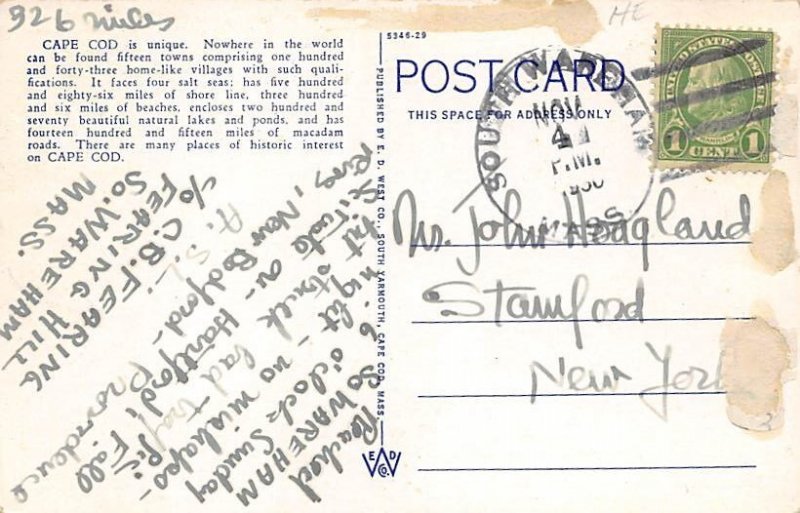 326 miles
CAPE COD is unique. Nowhere in the world
can be found fifteen towns comprising one hundred
and forty-three home-like villages with such quali-
fications. It faces four salt seas; has five hundred
and eighty-six miles of shore line, three hundred
and six miles of beaches, encloses two hundred and
seventy beautiful natural lakes and ponds, and has
fourteen hundred and fifteen miles of macadam
roads. There are many places of historic interest
on CAPE COD.
c/o
C.B. FEARING
FEARING HILL
SO. WAREHAM
MASS.
Reached SO WAREHAM
6 o'clock Sunday
night - no mishaps -
struck bad traffic
Hartford, Providence
Fall
River, New Bedford -
PUBLISHED BY E. D. WEST CO., SOUTH YARMOUTH, CAPE COD, MASS.
E D
W
CO.
5346-29
POST CARD
THIS SPACE FOR ADDRESS ONLY
HE
SOUTH WAREHAM
NOV
4
P.M.
1930
MASS.
UNITED STATES POSTAGE
FRANKLIN
1 CENT 1
Mr. John Hoagland
Stamford
New York
3